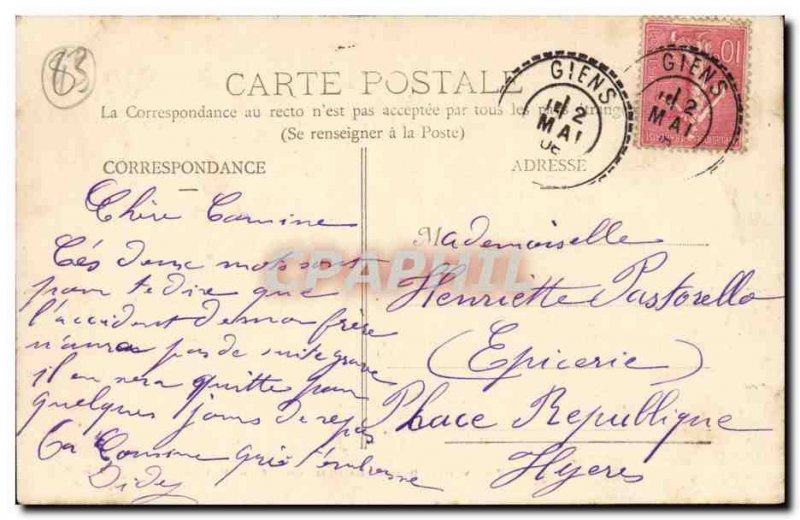 83
CARTE POSTALE
La Correspondance au recto n'est pas acceptée par tous les pays étrang
(Se renseigner à la Poste)
CORRESPONDANCE
Chère Cousine
Cés deux mots sont
pour te dire que
l'accident de mon frère
n'aura pas de suite grave
il en sera quitte pour
quelques jours de repos
Ta Cousine qui t'embrasse
Didy
ADRESSE
Mademoiselle
Henriette Pastorello
(Epicerie)
Place Republlique
Hyeres
GIENS
12
MAI
06
GIENS
12
MAI
10
CPAPHIL